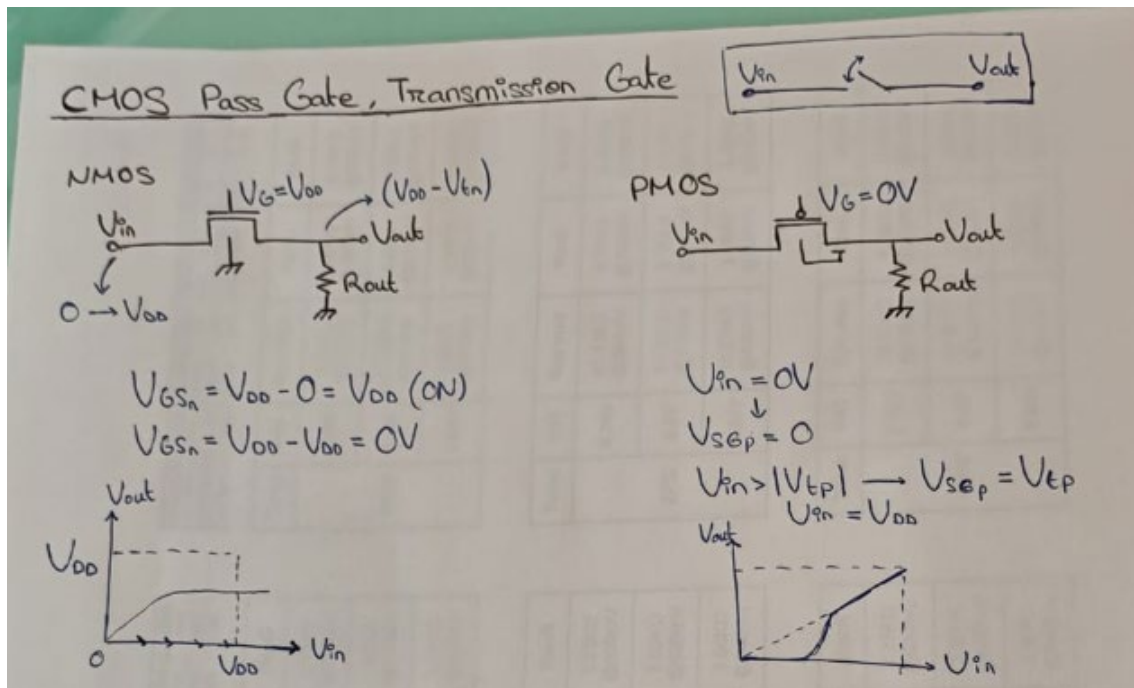 CMOS Pass Gate, Transmission Gate
Vin Vout
NMOS
VG=VDD
(VDD-Vtn)
Vin
Vout
Rout
0 → VDD
VGSn = VDD - 0 = VDD (ON)
VGSn = VDD - VDD = 0V
Vout
VDD
0
VDD
Vin
PMOS
VG=0V
Vin
Vout
Rout
Vin = 0V
↓
VSGp = 0
Vin > |Vtp| → VSGp = Vtp
Vin = VDD
Vout
Vin